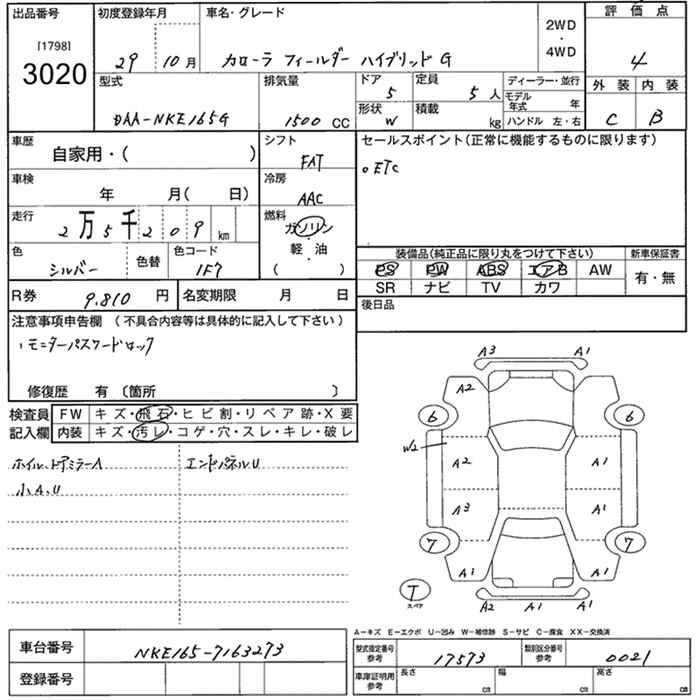 出品番号 初度登録年月 車名・グレード 2WD・4WD 評価点
[1798]
3020 29 10月 カローラ フィールダー ハイブリッド G 4
型式 排気量 ドア 5 定員 5人 ディーラー・並行 外装 内装
DAA-NKE165G 1500CC 形状 W 積載 kg モデル年式 年 C B
ハンドル 左・右
車歴 自家用・( ) シフト FAT セールスポイント(正常に機能するものに限ります)
車検 年 月( 日) 冷房 AAC ○ETC
走行 2万5千209km 燃料 ガソリン・軽・油・( )
色 シルバー 色替 色コード 1F7 装備品(純正品に限り丸をつけて下さい) 新車保証書
PS PW ABS エアB AW 有・無
SR ナビ TV カワ
R券 9.810円 名変期限 月 日 後日品
注意事項申告欄(不具合内容等は具体的に記入して下さい)
・モニターパスワードロック
修復歴 有〔箇所 〕
検査員記入欄 FW キズ・飛石・ヒビ割・リペア跡・X要
内装 キズ・汚レ・コゲ・穴・スレ・キレ・破レ
ホイル、ドアミラーA エンドパネルU
小A、U
A3 A1
A2
6 6
W2 A2 A1
A3 A1
7 7
A1 A1
T スペア
A2 A1 A1
A-キズ E-エクボ U-凹み W-補修跡 S-サビ C-腐食 XX-交換済
車台番号 NKE165-7163273 型式指定番号 参考 17573 類別区分番号 参考 0021
登録番号 車庫証明用 参考 長さ cm 幅 cm 高さ cm